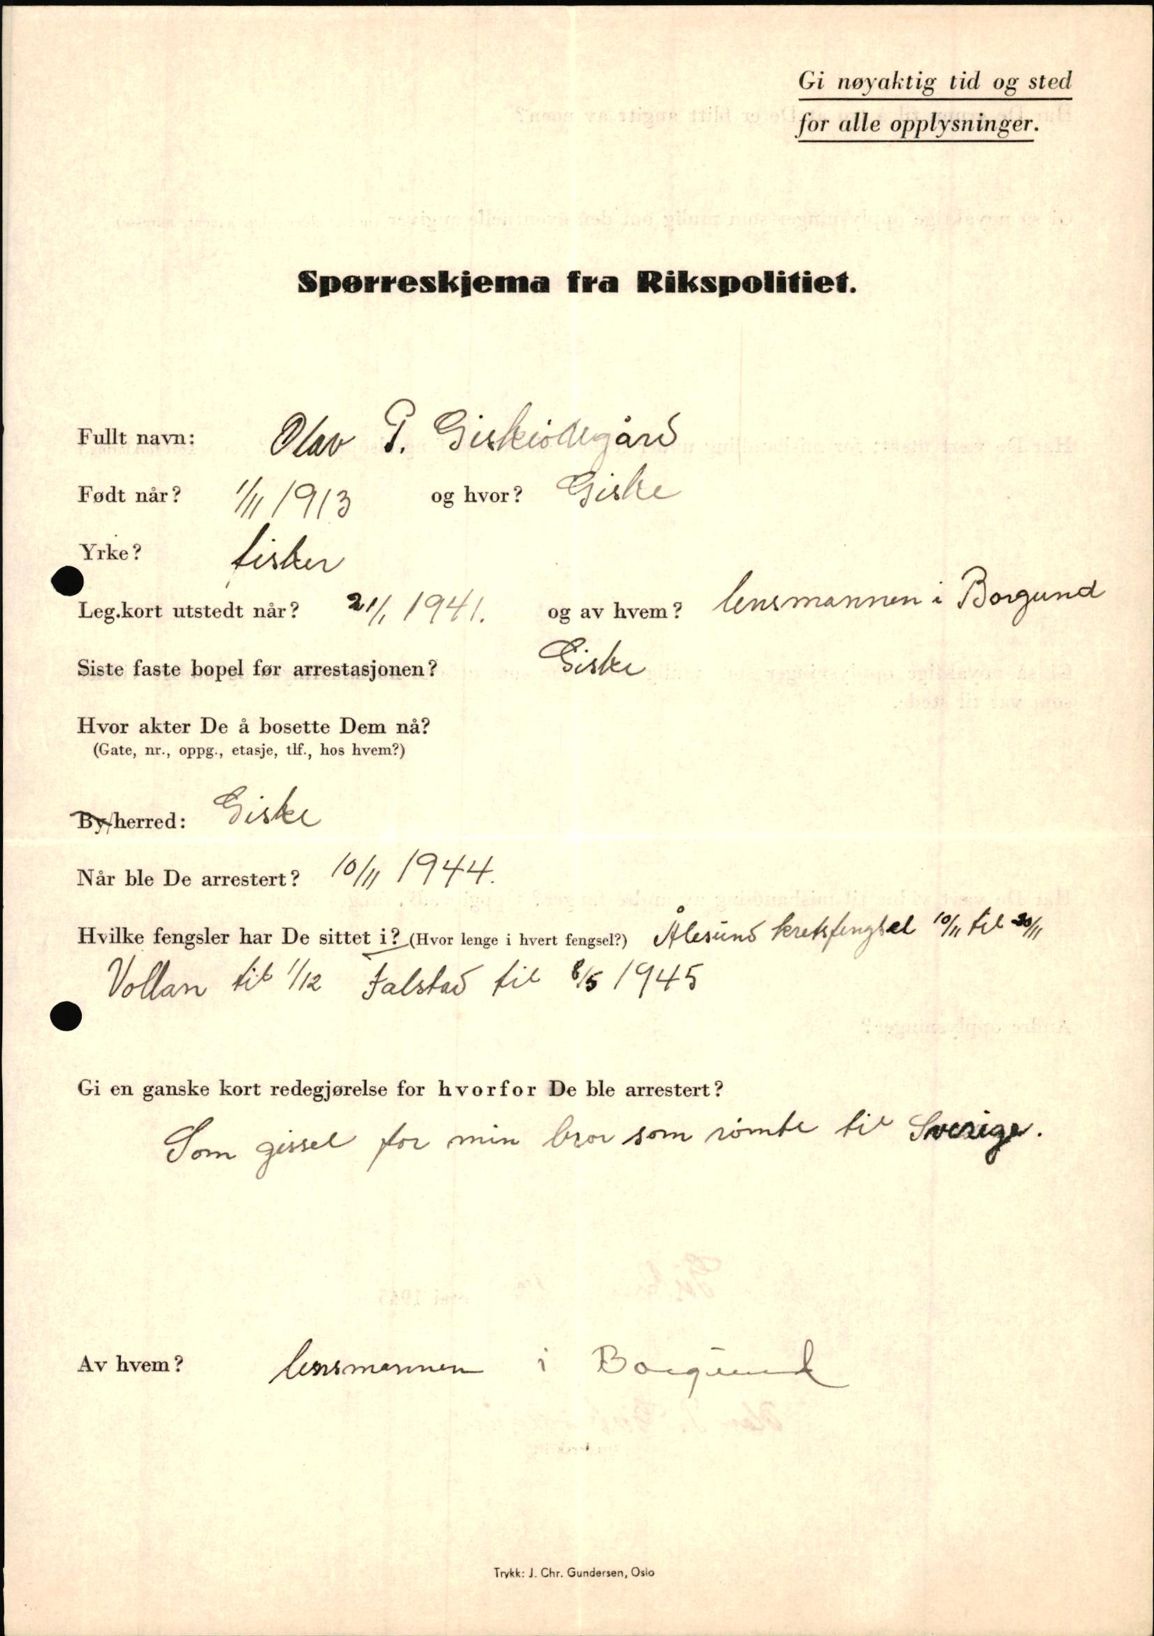 Gi nøyaktig tid og sted
for alle opplysninger.
Spørreskjema fra Rikspolitiet.
Fullt navn: Olav P. Giskeødegård
Født når? 1/11 1913 og hvor? Giske
Yrke? fisker
Leg.kort utstedt når? 21/1 1941. og av hvem? lensmannen i Borgund
Siste faste bopel før arrestasjonen? Giske
Hvor akter De å bosette Dem nå?
(Gate, nr., oppg., etasje, tlf., hos hvem?)
By/herred: Giske
Når ble De arrestert? 10/11 1944.
Hvilke fengsler har De sittet i? (Hvor lenge i hvert fengsel?) Ålesund kretsfengsel 10/11 til 20/11
Vollan til 1/12 Falstad til 8/5 1945
Gi en ganske kort redegjørelse for hvorfor De ble arrestert?
Som gissel for min bror som rømte til Sverige.
Av hvem? lensmannen i Borgund
Trykk: J. Chr. Gundersen, Oslo